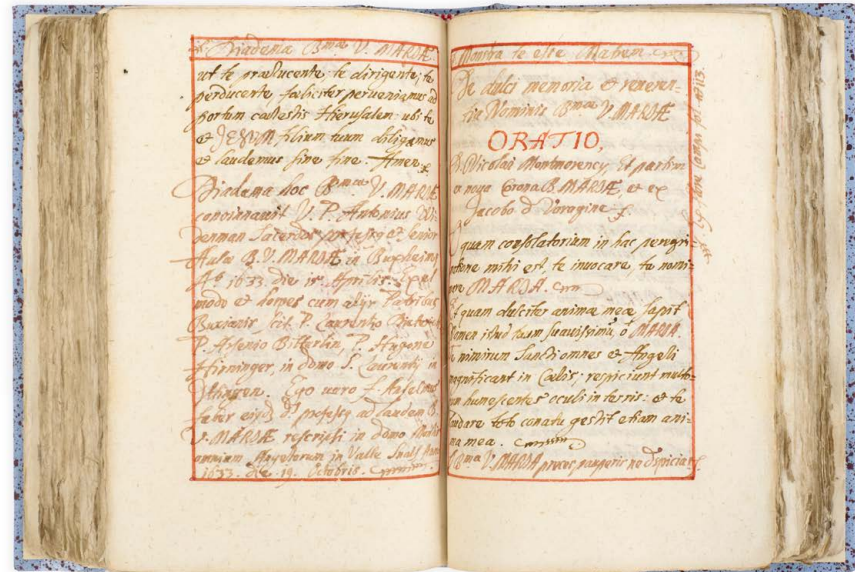 Diadema B.mae V. MARIÆ.
ut te praelucente, te dirigente, te
perducente, foeliciter perueniamus ad
portam caelestis Hierusalem: ubi te
& JESUM filium tuum diligamus
& laudemus sine fine. Amen.
Diadema hoc B.mae V. MARIÆ
concinnauit V. P. Antonius
denman Sacerdos professus & Senior
Aulae B. V. MARIÆ in Buxheim
Aº 1633. die 15. Aprilis.
modo & domes cum alijs Patribus
Buxianis, scil. P. Laurentio
P. Arsenio Bitterlin, P. Hugone
Hirninger, in domo S. Laurentij in
Ittingen. Ego uero f. Anselmus
professus ad laudem B.
V. MARIÆ rescripsi in domo
omnium Angelorum in Valle
1633. die 19. Octobris.
Monstra te esse Matrem.
De dulci memoria & reueren-
tia Nominis B.mae V. MARIÆ
ORATIO.
D. Nicolai Montmorency, et partim
ex noua Corona B. MARIÆ, & ex
Jacobo d Voragine f.
O quam consolatorium in hac peregri-
natione mihi est, te inuocare, te nomi-
nare MARIA.
Et quam dulciter animae meae sapit
Nomen istud tuum suauissimum, ô MARIA.
Te nimirum Sancti omnes & Angeli
magnificant in Coelis; respiciunt
humescentes oculi in terris: & te
laudare toto conatu gestit etiam ani-
ma mea.
V. MARIA preces pauperis ne despicias